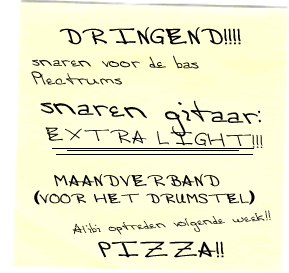 DRINGEND!!!!
snaren voor de bas
Plectrums
snaren gitaar:
EXTRA LIGHT!!!
MAANDVERBAND
(VOOR HET DRUMSTEL)
Alibi optreden volgende week!!
PIZZA!!